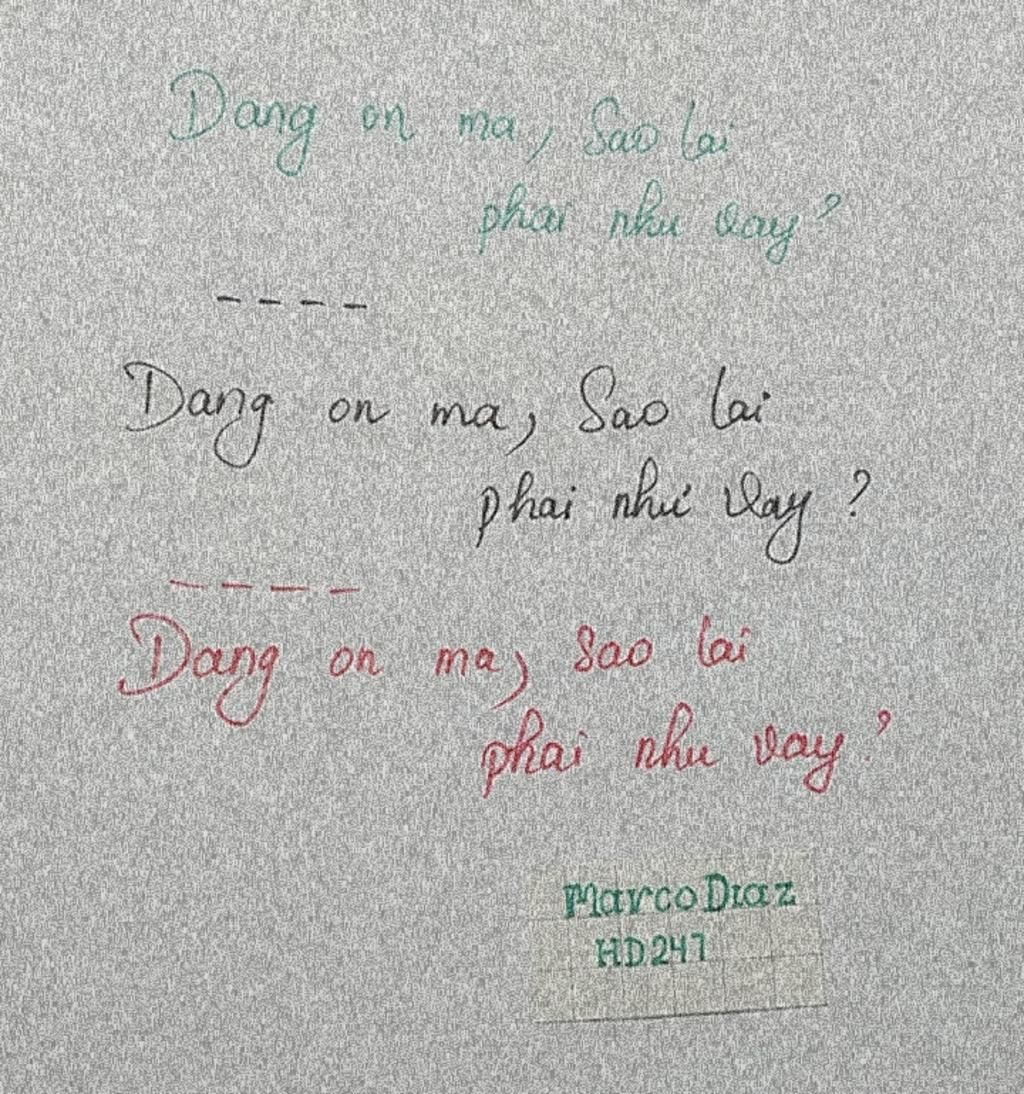 Dang on ma, Sao lai
phai nhu vay?
----
Dang on ma, Sao lai
phai như vay?
----
Dang on ma, Sao lai
phai nhu vay?
Marco Diaz
HD247